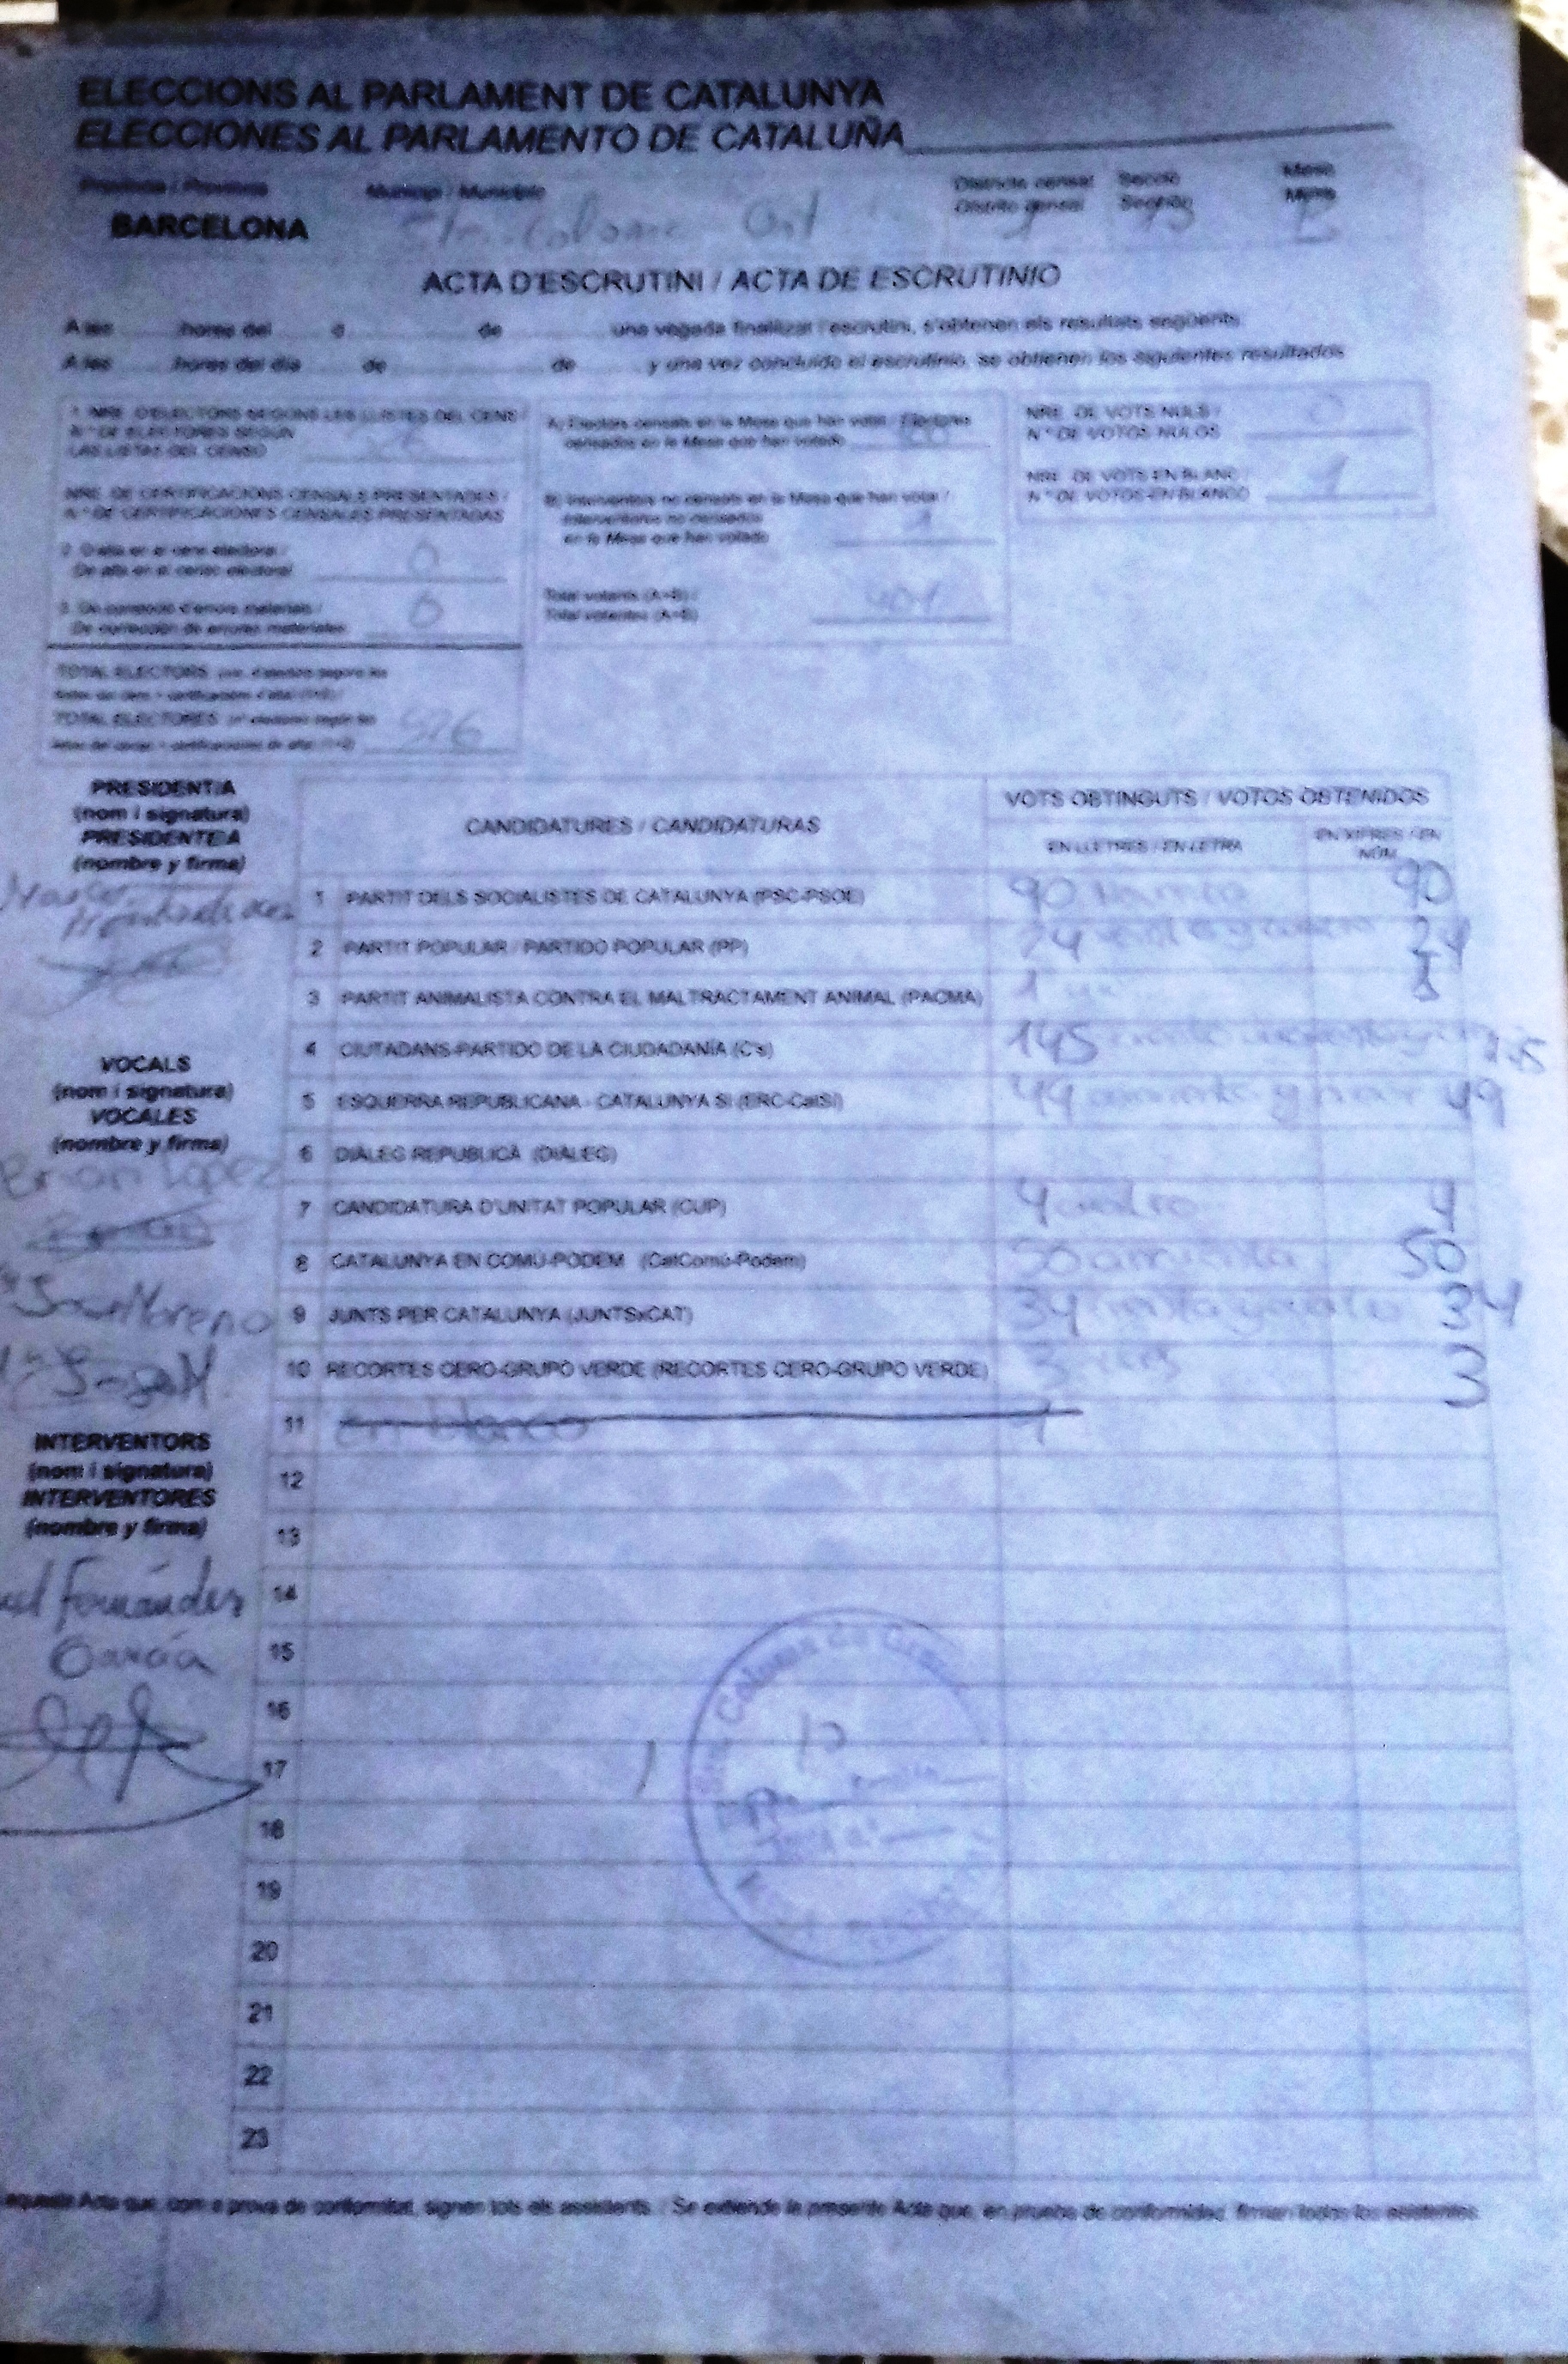 ELECCIONS AL PARLAMENT DE CATALUNYA
ELECCIONES AL PARLAMENTO DE CATALUÑA
Província / Provincia Municipi / Municipio Districte censal Secció Mesa
Distrito censal Sección Mesa
BARCELONA Sta. Coloma Gnt
ACTA D'ESCRUTINI / ACTA DE ESCRUTINIO
A les hores del d de una vegada finalitzat l'escrutini, s'obtenen els resultats següents
A las horas del día de de y una vez concluido el escrutinio, se obtienen los siguientes resultados
1. NRE. D'ELECTORS SEGONS LES LLISTES DEL CENS /
N.º DE ELECTORES SEGÚN
LAS LISTAS DEL CENSO
NRE. DE CERTIFICACIONS CENSALS PRESENTADES /
N.º DE CERTIFICACIONES CENSALES PRESENTADAS
2. D'alta en el cens electoral /
De alta en el censo electoral 0
3. De correcció d'errors materials /
De corrección de errores materiales 0
TOTAL ELECTORS
TOTAL ELECTORES 526
A) Electors censats en la Mesa que han votat / Electores
censados en la Mesa que han votado 400
B) Interventors no censats en la Mesa que han votat /
Interventores no censados
en la Mesa que han votado 1
Total votants (A+B) /
Total votantes (A+B) 401
NRE. DE VOTS NULS /
N.º DE VOTOS NULOS 0
NRE. DE VOTS EN BLANC /
N.º DE VOTOS EN BLANCO 1
PRESIDENT/A
(nom i signatura)
PRESIDENTE/A
(nombre y firma)
VOCALS
(nom i signatura)
VOCALES
(nombre y firma)
López
Moreno
INTERVENTORS
(nom i signatura)
INTERVENTORES
(nombre y firma)
Fernández
García
CANDIDATURES / CANDIDATURAS VOTS OBTINGUTS / VOTOS OBTENIDOS
EN LLETRES / EN LETRA EN XIFRES / EN NÚM.
1 PARTIT DELS SOCIALISTES DE CATALUNYA (PSC-PSOE) 90 noventa 90
2 PARTIT POPULAR / PARTIDO POPULAR (PP) 24 24
3 PARTIT ANIMALISTA CONTRA EL MALTRACTAMENT ANIMAL (PACMA) 1
4 CIUTADANS-PARTIDO DE LA CIUDADANÍA (C's) 145
5 ESQUERRA REPUBLICANA - CATALUNYA SÍ (ERC-CatSí) 49 49
6 DIÀLEG REPUBLICÀ (DIÀLEG)
7 CANDIDATURA D'UNITAT POPULAR (CUP) 4 cuatro 4
8 CATALUNYA EN COMÚ-PODEM (CatComú-Podem) 50 cincuenta 50
9 JUNTS PER CATALUNYA (JUNTSxCAT) 34 treinta y cuatro 34
10 RECORTES CERO-GRUPO VERDE (RECORTES CERO-GRUPO VERDE) 3 tres 3
11 En blanco 1
12
13
14
15
16
17
18
19
20
21
22
23
aquesta Acta que, com a prova de conformitat, signen tots els assistents. / Se extiende la presente Acta que, en prueba de conformidad, firman todos los asistentes.